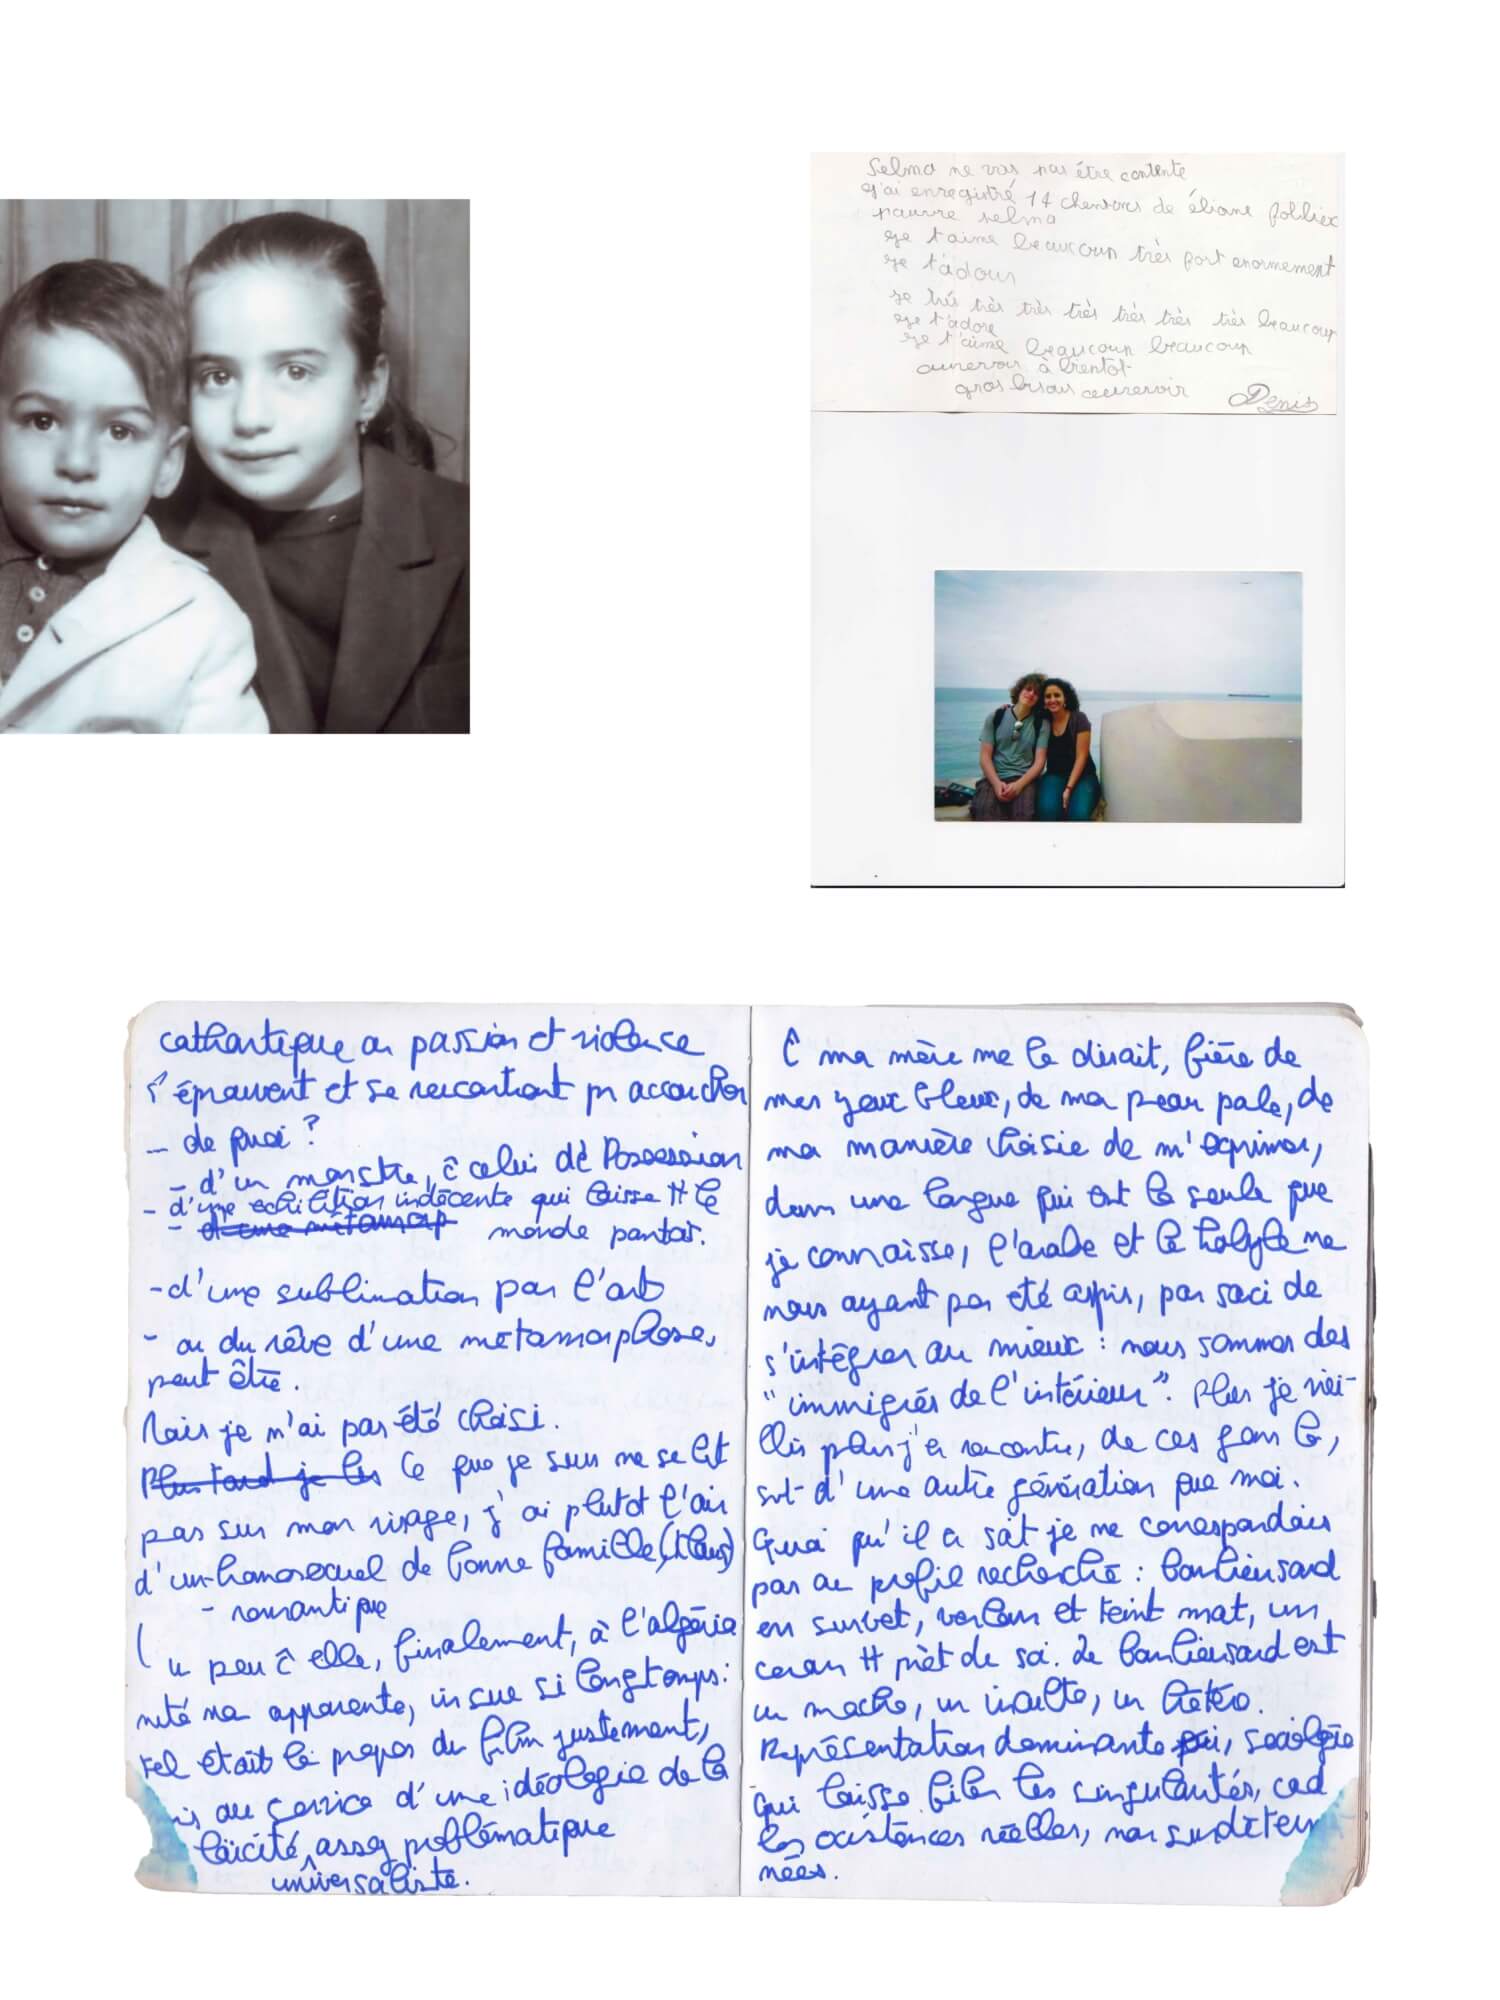 Selma ne vas pas être contente
j'ai enregistré 14 chentons de éliane folliex
pauvre selma
je t'aime beaucoup très fort enormement
je t'adour
je très très très très très très beaucoup
je t'adore
je t'aime beaucoup beaucoup
aurevoir à bientot
gros bisous aurevoir Denis
cathartique où passion et violence
s'éprouvent et se rencontrent pr accoucher
- de quoi ?
- d'un monstre, c celui de Possession
- d'une exhibition indécente qui laisse tt le
- d'une métamorp monde pantois.
- d'une sublimation par l'art
- ou du rêve d'une métamorphose,
peut être.
Mais je n'ai pas été choisi.
Plus tard je lis Ce que je suis ne se lit
pas sur mon visage, j'ai plutot l'air
d'un homosexuel de bonne famille
- romantique
un peu c elle, finalement, à l'algéria
nité non apparente, insue si longtemps :
tel était le propos du film justement,
mis au service d'une idéologie de la
laïcité assez problématique
universaliste.
C ma mère me le disait, fière de
mes yeux bleux, de ma peau pale, de
ma manière choisie de m'exprimer,
dans une langue qui est la seule que
je connaisse, l'arabe et le kabyle ne
nous ayant pas été appris, par souci de
s'intégrer au mieux : nous sommes des
"immigrés de l'intérieur". Plus je viei-
llis plus j'en rencontre, de ces gens là,
svt d'une autre génération que moi.
Quoi qu'il en soit je ne correspondais
pas au profil recherché : banlieusard
en survet, verlan et teint mat, un
coran tt prêt de soi. Le banlieusard est
un macho, un inculte, un hétéro.
Représentation dominante qui, sociologie
qui laisse filer les singularités, cad
les existences réelles, non surdéterm
nées.